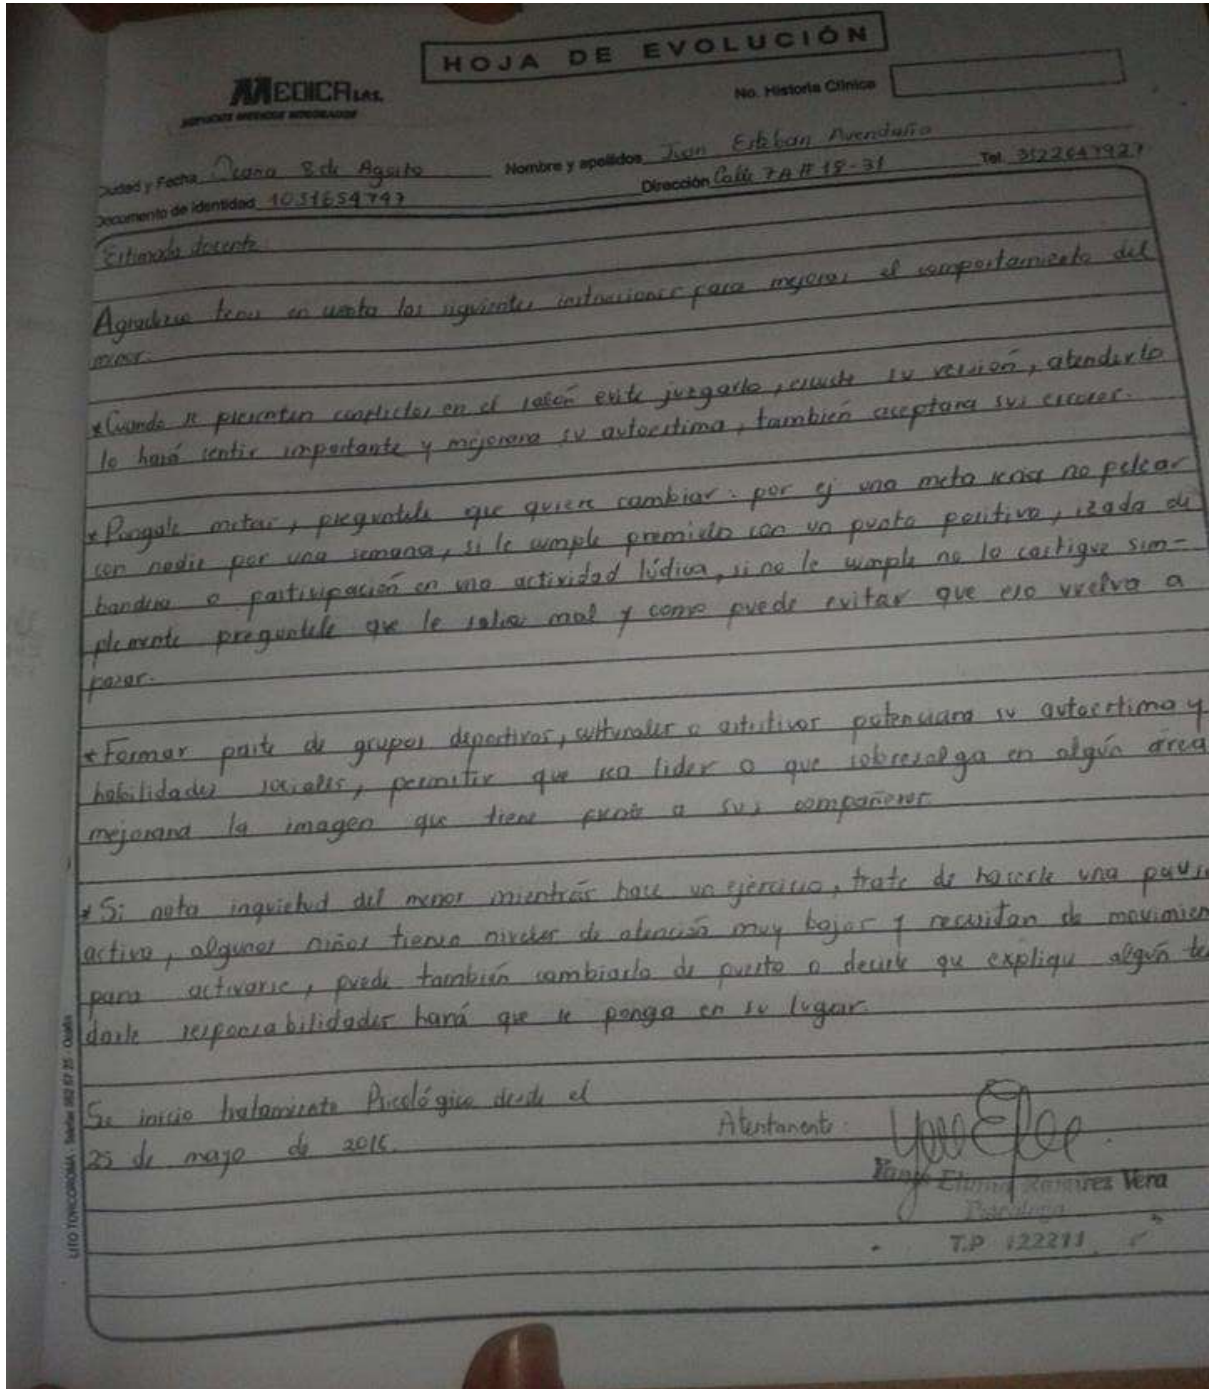 HOJA DE EVOLUCIÓN
MEDICA S.A.S.
SERVICIOS MEDICOS INTEGRADOS
No. Historia Clínica
Ciudad y Fecha Ocaña 8 de Agosto Nombre y apellidos Juan Esteban Avendaño
Documento de identidad 1031654797 Dirección Calle 7A # 18-31 Tel.
Estimada docente:
Agradezco tener en cuenta las siguientes instrucciones para mejorar el comportamiento del
menor:
* Cuando se presenten conflictos en el salón evite juzgarlo, escuche su versión, atenderlo
lo hará sentir importante y mejorara su autoestima, también aceptara sus errores.
* Pongale metas, preguntele que quiere cambiar. por ej una meta seria no pelear
con nadie por una semana, si le cumple premielo con un punto positivo, izada de
bandera o participación en una actividad lúdica, si no le cumple no lo castigue sim-
plemente preguntele que le salio mal y como puede evitar que eso vuelva a
pasar.
* Formar parte de grupos deportivos, culturales o artistivos potenciara su autoestima y
habilidades sociales, permitir que sea lider o que sobresalga en algún área
mejorara la imagen que tiene frente a sus compañeros.
* Si nota inquietud del menor mientrás hace un ejercicio, trate de hacerle una paus
activa, algunos niños tienen niveles de atención muy bajos y necesitan de movimien
para activarse, puede también cambiarlo de puesto o decirle que explique algún te
darle responsabilidades hará que se ponga en su lugar.
Se inicio tratamiento Psicológico desde el
25 de mayo de
Atentamente:
Ramires Vera
Psicologa
T.P 122211
LITO TORCOROMA - Telefax 562 57 25 - Ocaña